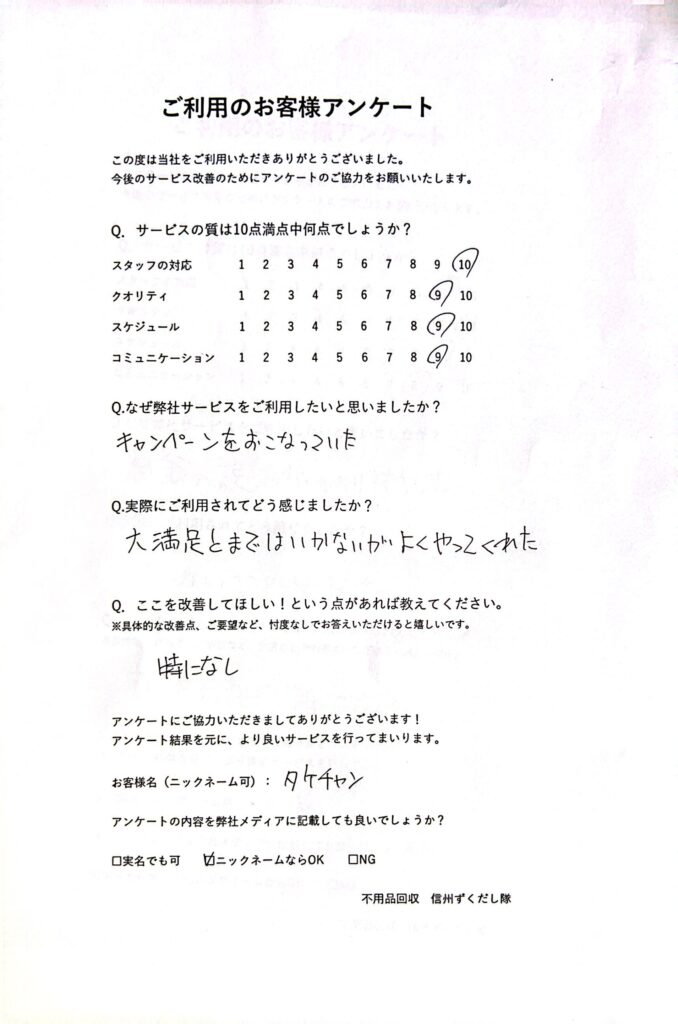 ご利用のお客様アンケート
この度は当社をご利用いただきありがとうございました。
今後のサービス改善のためにアンケートのご協力をお願いいたします。
Q. サービスの質は10点満点中何点でしょうか？
スタッフの対応 1 2 3 4 5 6 7 8 9 10
クオリティ 1 2 3 4 5 6 7 8 9 10
スケジュール 1 2 3 4 5 6 7 8 9 10
コミュニケーション 1 2 3 4 5 6 7 8 9 10
Q.なぜ弊社サービスをご利用したいと思いましたか？
キャンペーンをおこなっていた
Q.実際にご利用されてどう感じましたか？
大満足とまではいかないがよくやってくれた
Q. ここを改善してほしい！という点があれば教えてください。
※具体的な改善点、ご要望など、忖度なしでお答えいただけると嬉しいです。
特になし
アンケートにご協力いただきましてありがとうございます！
アンケート結果を元に、より良いサービスを行ってまいります。
お客様名（ニックネーム可）： タケチャン
アンケートの内容を弊社メディアに記載しても良いでしょうか？
□実名でも可 ☑ニックネームならOK □NG
不用品回収 信州ずくだし隊